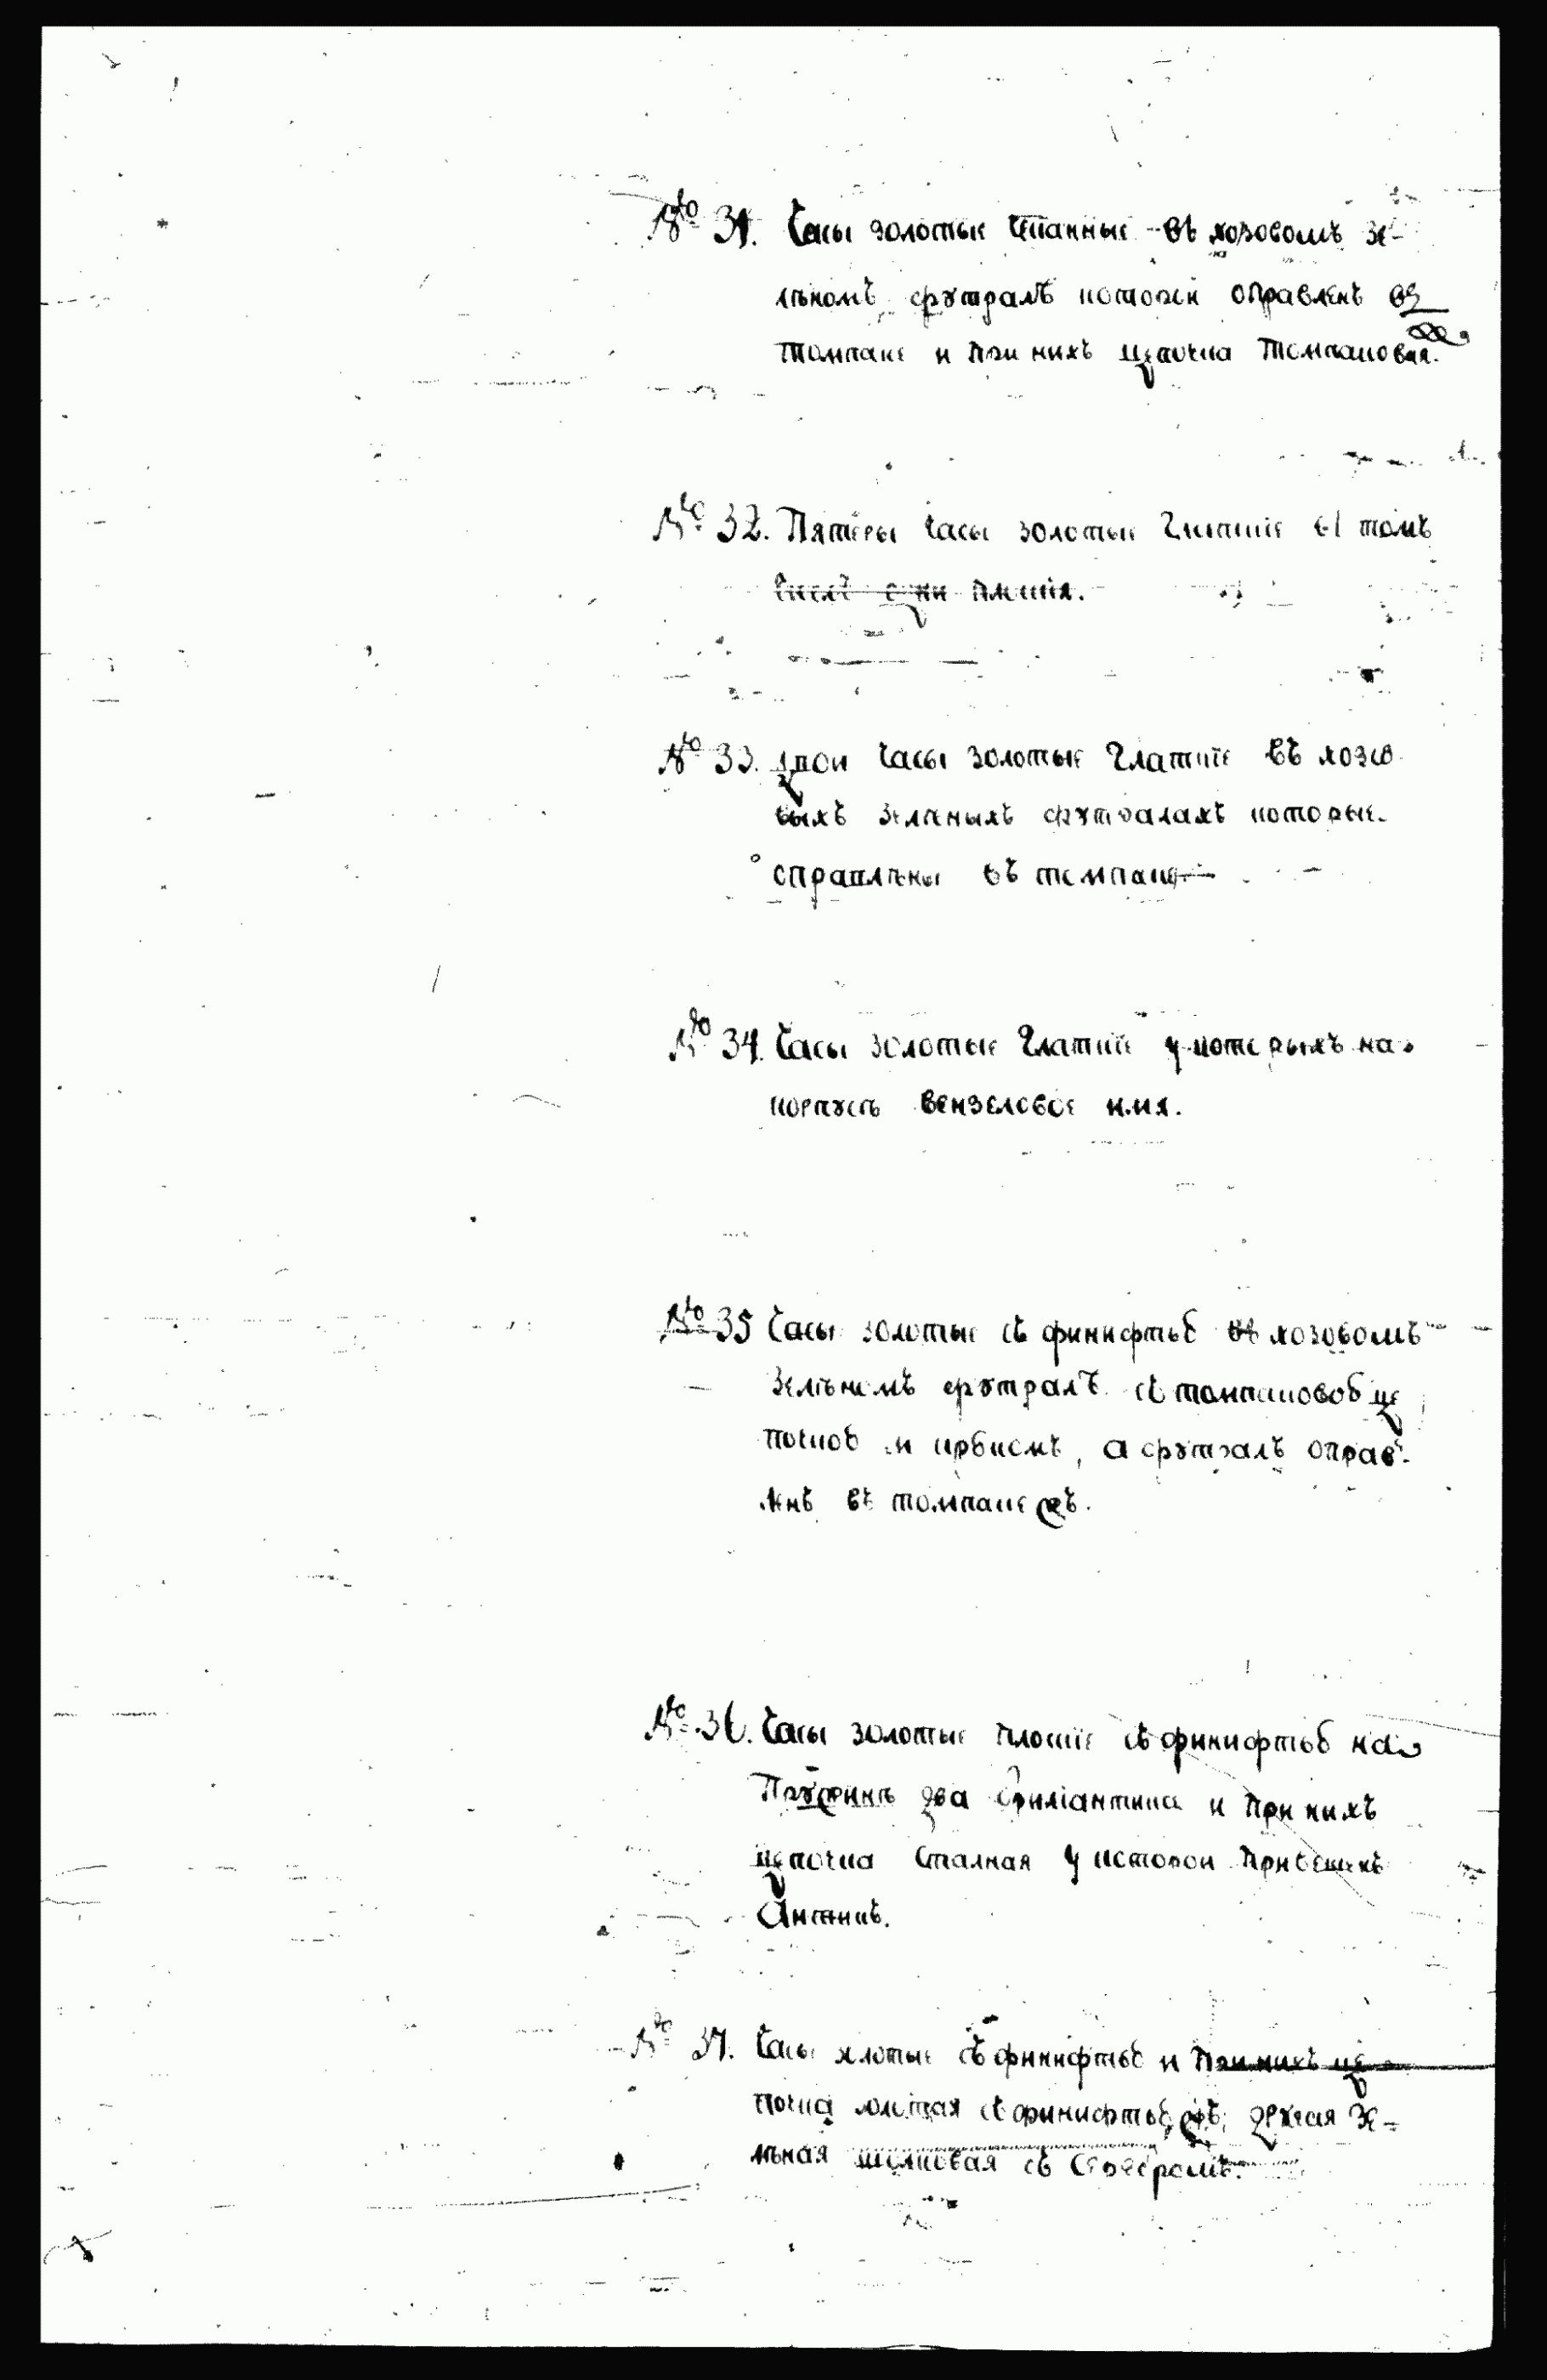 № 31. Часы золотые чеканные въ хозовомъ зе-
леномъ футралѣ которой оправленъ въ
томпакѣ и при нихъ цепочка томпаковая.
№ 32. Пятеры часы золотые глаткие въ томъ
числѣ одни плоския.
№ 33. Двои часы золотые глаткие въ хозо
выхъ зеленыхъ футралахъ которые
оправлены въ томпаке
№ 34. Часы золотые глаткие у которыхъ на
корпусе вензеловое имя.
№ 35 Часы золотые съ финифтью въ хозовомъ
зеленомъ футралѣ съ томпаковою це
почкою и крюкомъ, а футралъ оправ-
ленъ въ томпаке жъ.
№ 36. Часы золотые плоские съ финифтью на
пружине два брилиантика и при нихъ
цепочка сталная у которой привешенъ
антикъ.
№ 37. Часы золотые съ финифтью и при нихъ це
почка золотая съ финифтью жъ, другая зе-
леная шелковая съ